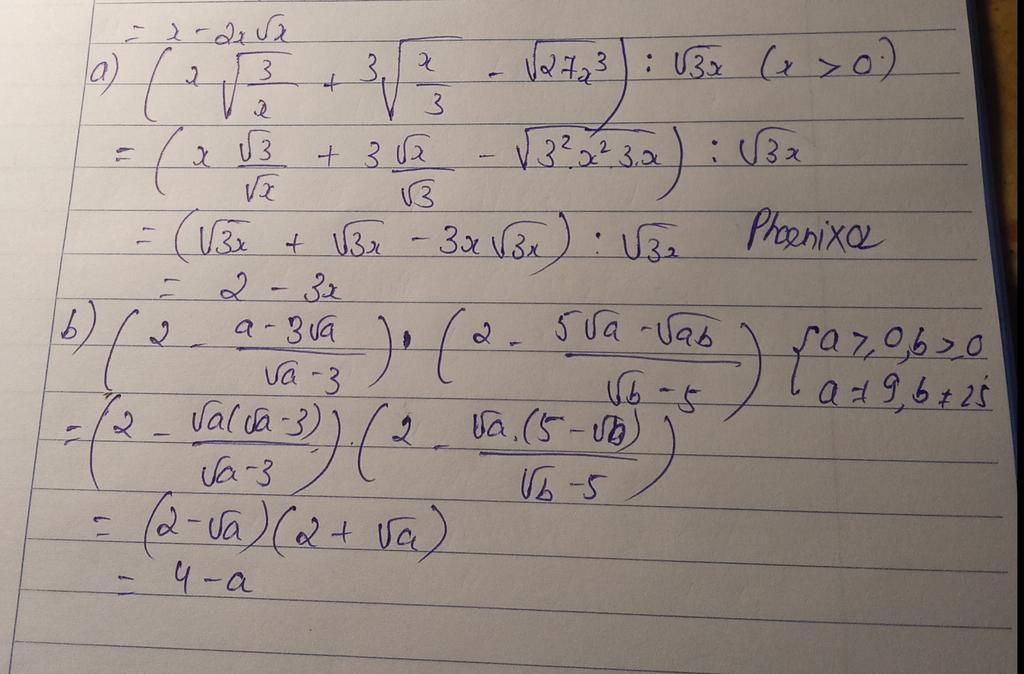 = x - 2x√x
a) (x√(3/x) + 3√(x/3) - √(27x³)) : √3x (x > 0)
= (x √3/√x + 3 √x/√3 - √(3².x².3.x)) : √3x
= (√3x + √3x - 3x√3x) : √3x Phoenixa
= 2 - 3x
b) (2 - (a - 3√a)/(√a - 3)) . (2 - (5√a - √ab)/(√b - 5)) { a ≥ 0, b ≥ 0
a ≠ 9, b ≠ 25
= (2 - √a(√a - 3)/(√a - 3)) . (2 - √a.(5 - √b)/(√b - 5))
= (2 - √a)(2 + √a)
= 4 - a